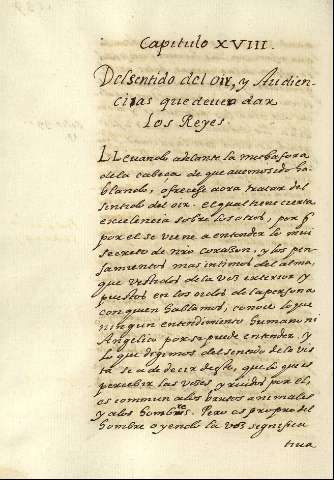 Capitulo XVIII.
Del sentido del oir, y Audien-
cias que deven dar
los Reyes.
LLevando adelante la metafora
de la cabeça de que avemos ido ha-
blando, ofrecese aora tratar del
sentido del oir. El qual tiene cierta
excelencia sobre los otros, por q̃
por el se viene a entender lo mui
secreto de nr̃o corazon, y los pen-
samientos mas intimos del alma,
que vestidos de la voz exterior y
puestos en los oidos de la persona
con quien hablamos, conoce lo que
ningun entendimiento humano ni
Angelico por si puede entender. y
lo que digimos del sentido de la vis-
ta se a de decir deste, que lo que es
percebir las vozes y ruidos por el,
es commun a los brutos animales
y a los hombres. Pero es propro del
hombre oyendo la voz significa
tiua